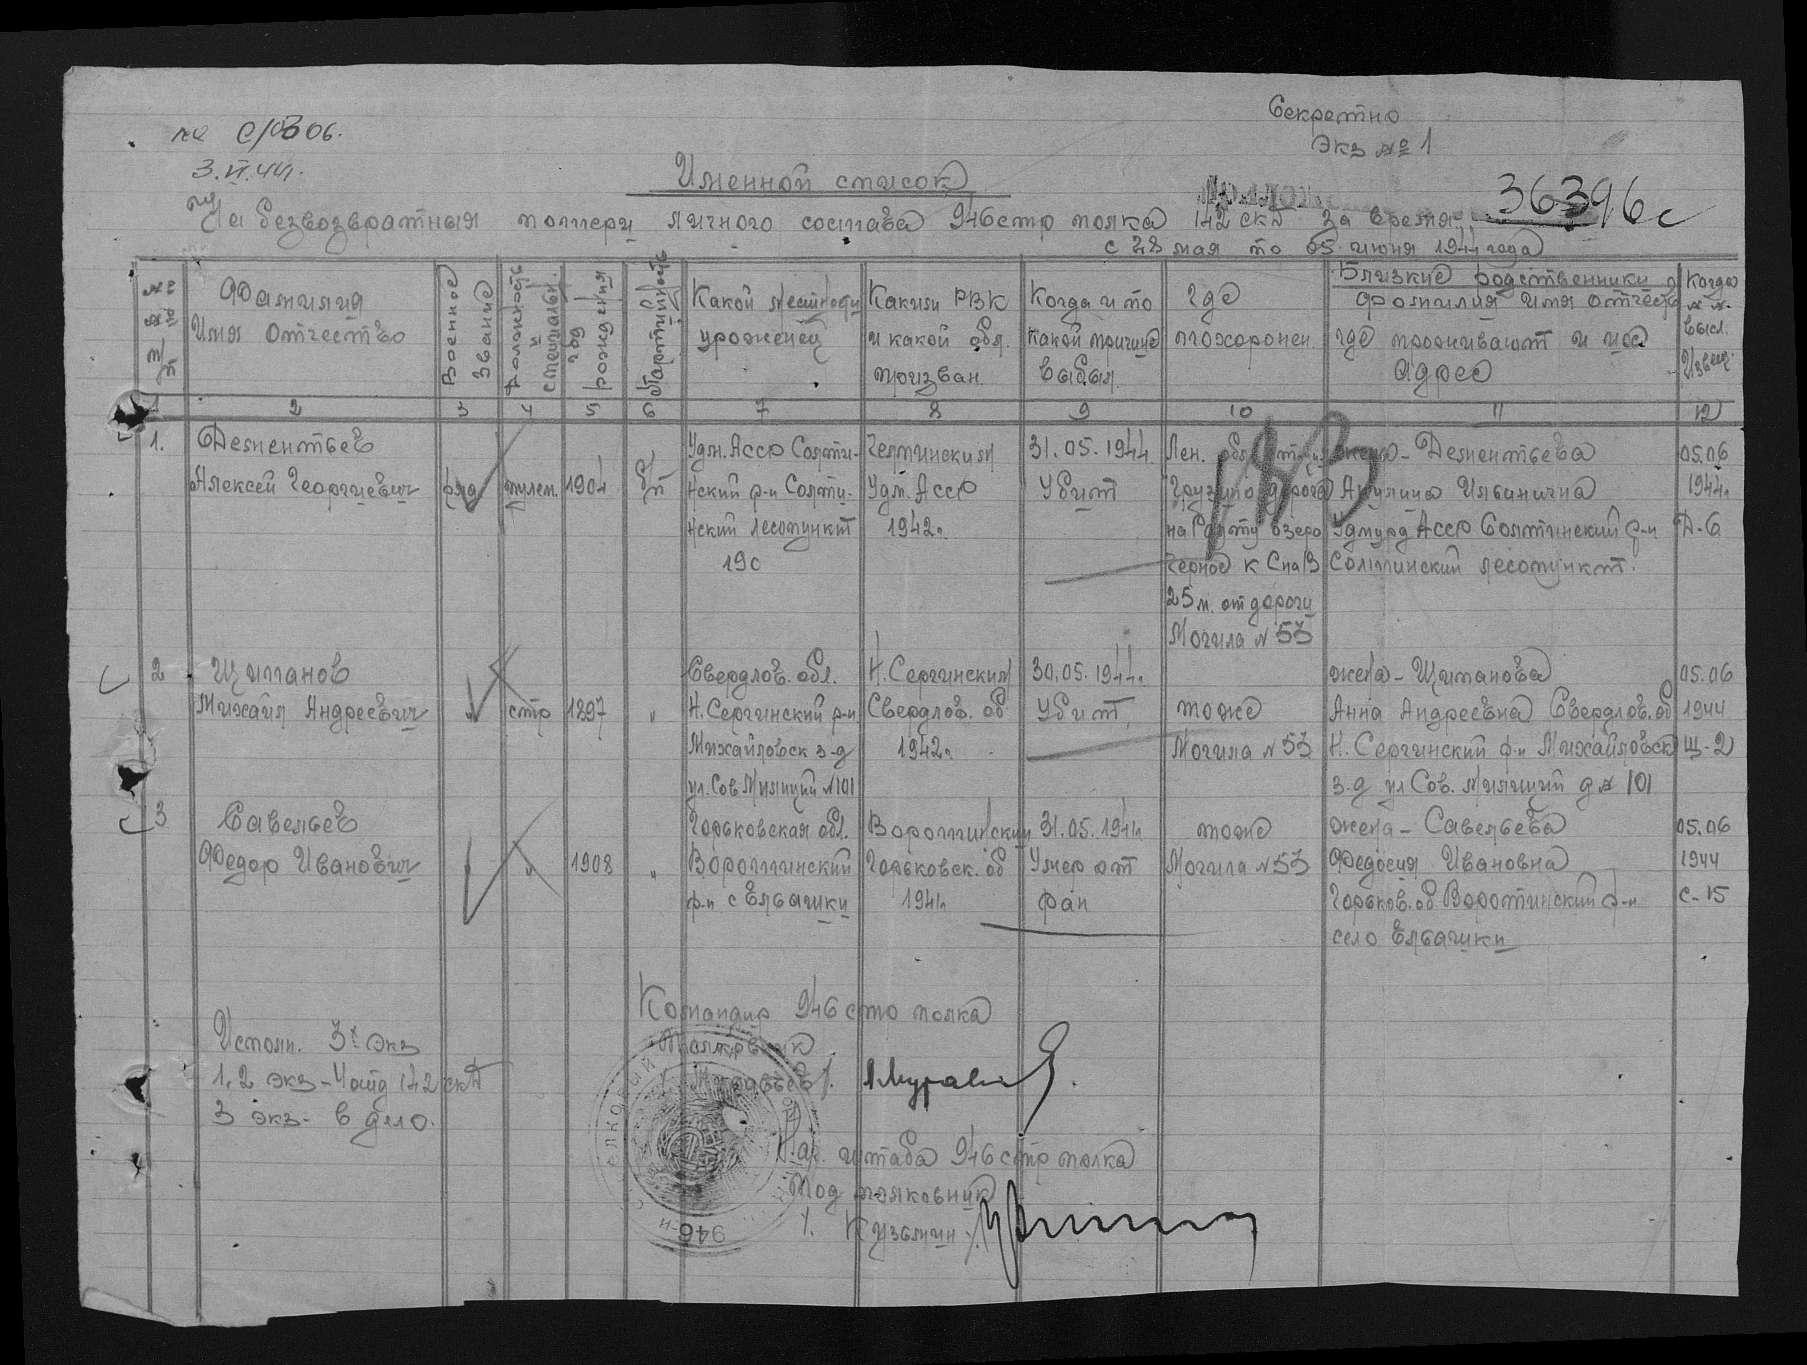 Секретно
Экз № 1
3.VI.44г.
Именной список
На безвозвратныя потери личного состава 946 стр полка 142 скд за время
36396с
с 28 мая по 05 июня 1944 года
№№ п/п
Фамилия Имя Отчество
Военное звание
Должность и специальн.
год рождения
Партийность
Какой местности уроженец
Каким РВК и какой обл. призван
Когда и по какой причине выбыл
Где похоронен
Близкие родственники фамилия имя отчеств где проживают и их адрес
Когда высл. Извещ.
1 2 3 4 5 6 7 8 9 10 11 12
1. Дементьев Удм. АССР Селти- Селтинским 31.05.1944 Лен. обл жена - Дементьева 05.06
Алексей Георгиевич ряд пулем. 1904 б/п нский р-н Селти- Удм. АССР Убит дорога Акулина Ильинична 1944г.
нский лесопункт 1942г. на озеро Удмурд АССР Селтинский р-н Д-6
190 Черное к Селтинский лесопункт.
25 м. от дороги
Могила № 53
2 Щипанов Свердлов. обл. Н. Сергинским 30.05.1944г. жена - Щипанова 05.06
Михаил Андреевич " стр 1897 " Н. Сергинский р-н Свердлов. об Убит тоже Анна Андреевна Свердлов. об 1944
Михайловск з-д 1942г. Могила № 53 Н. Сергинский р-н Михайловск Щ-2
ул. Сов Милиций №101 з-д ул Сов. Милиций д № 101
3 Савельев Горьковская обл. Воротинским 31.05.1944 тоже жена - Савельева 05.06
Федор Иванович " 1908 " Воротинский Горьковск. об Умер от Могила № 53 Федосия Ивановна 1944
р-н с Елвашки 1941г. ран Горьков. об Воротинский р-н С-15
село Елвашки
Командир 946 стр полка
Полковник
/Муравьев/.
Исполн. 3х экз
1,2 экз - штд 142 скд
3 экз - в дело.
Нач. штаба 946 стр полка
Подполковник
/. Кузьмин /.
946-й